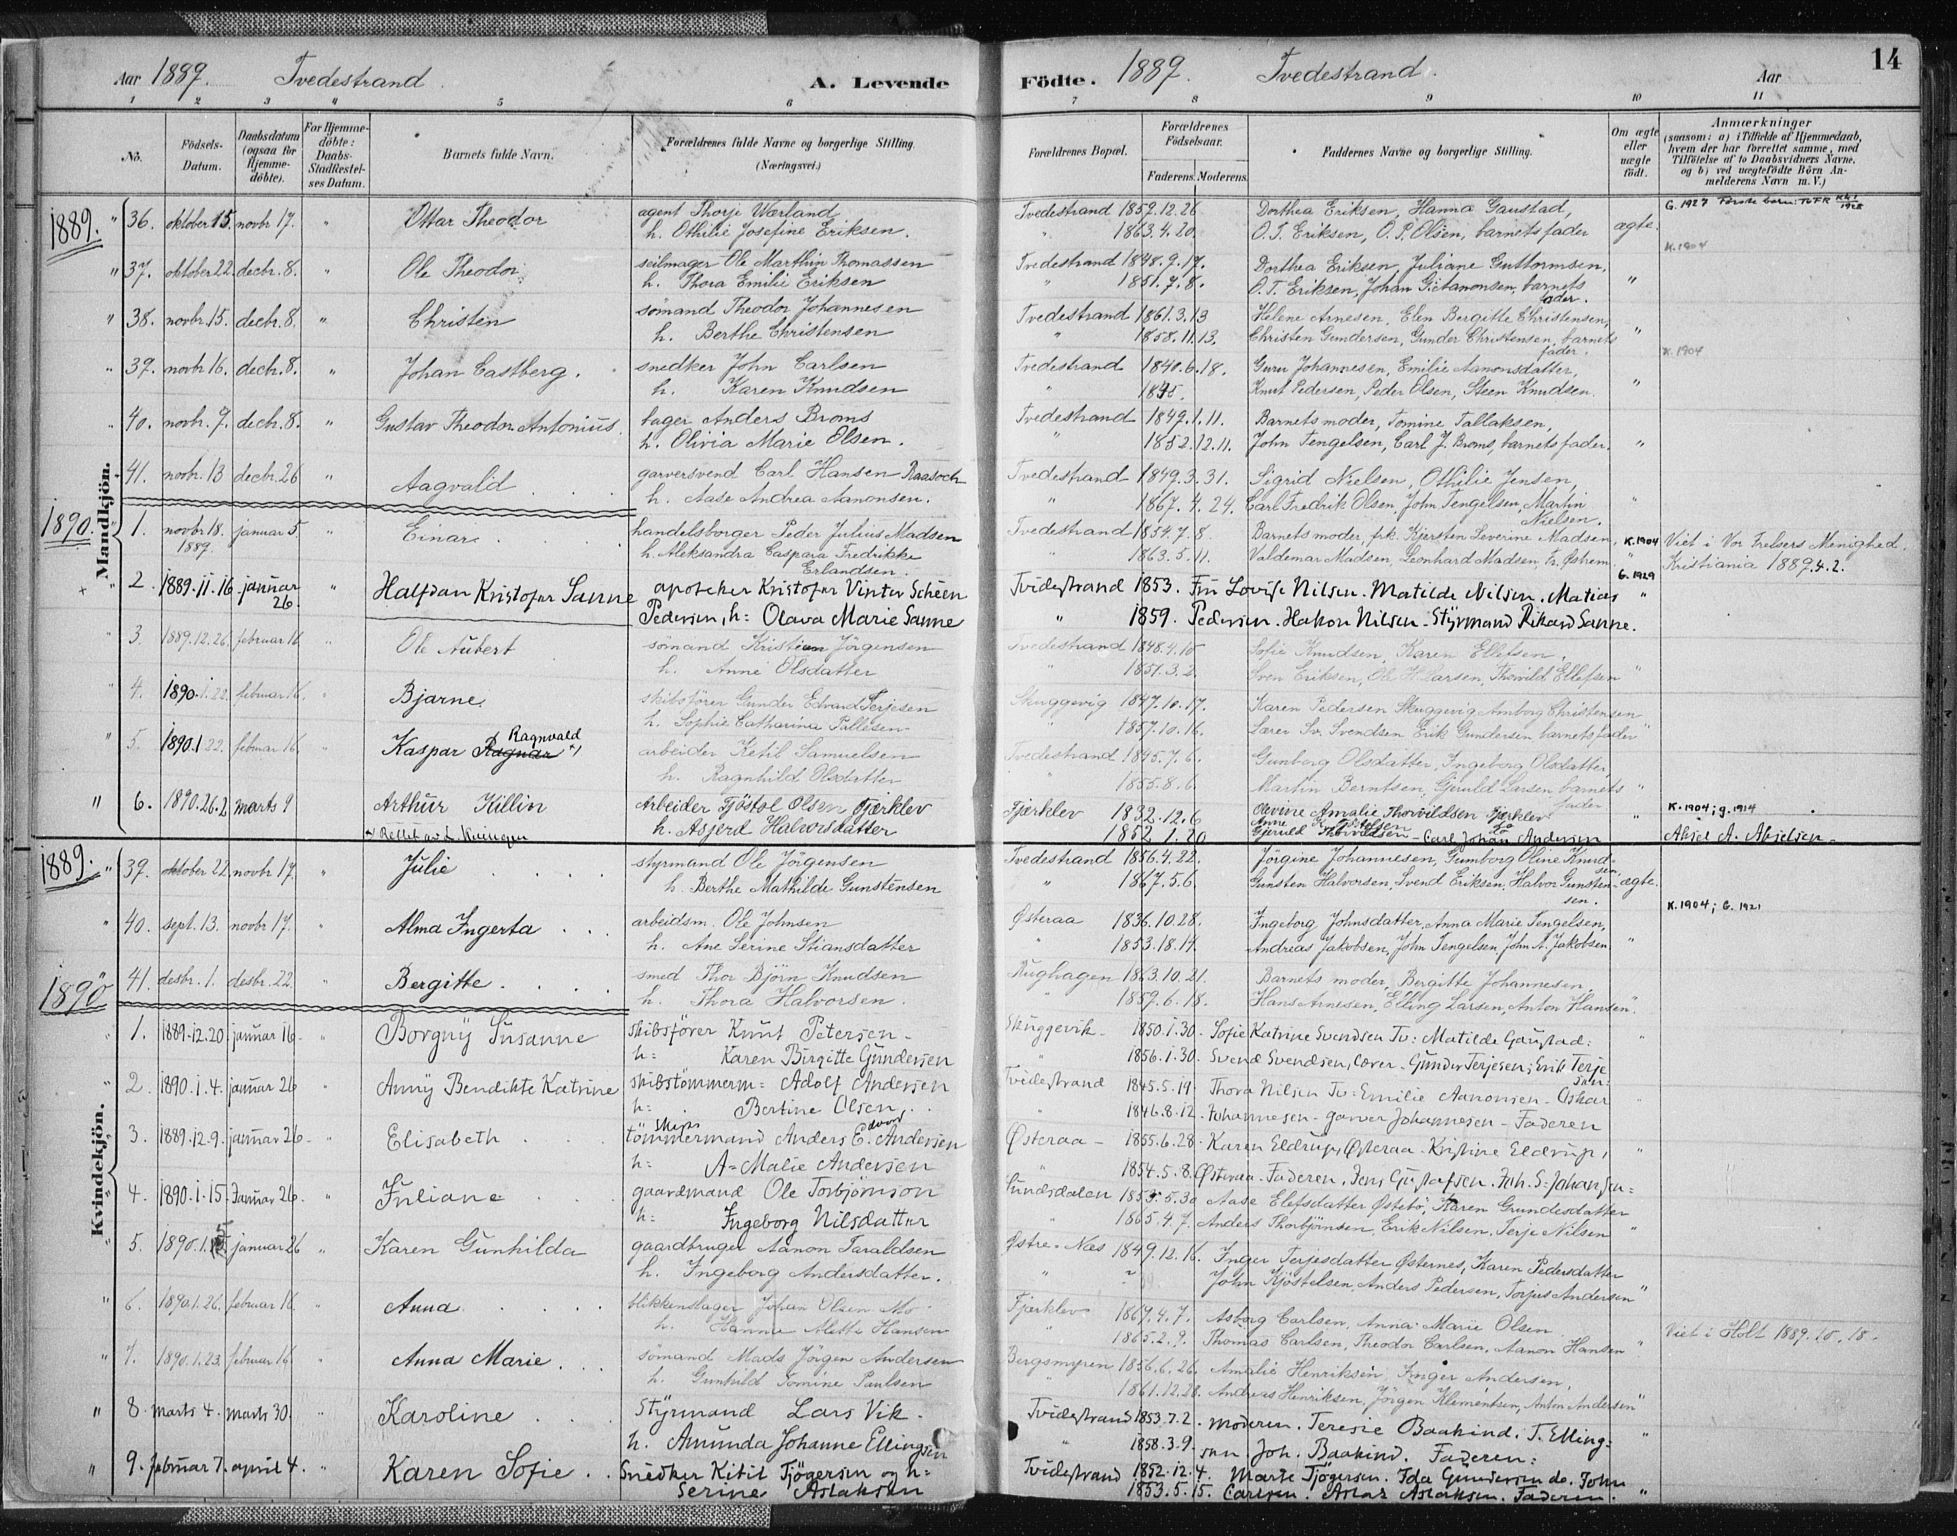 14
Aar 1889. Tvedestrand. A. Levende Födte. 1889. Tvedestrand. Aar
1 2 3 4 5 6 7 8 9 10 11
No. Födsels-Datum. Daabsdatum (ogsaa for Hjemmedöbte). For Hjemmedöbte: Daabs-Stadfæstelses Datum. Barnets fulde Navn. Forældrenes fulde Navne og borgerlige Stilling. (Næringsvei.) Forældrenes Bopæl. Forældrenes Födselsaar. Faderens. Moderens. Faddernes Navne og borgerlige Stilling. Om ægte eller uægte födt. Anmærkninger (saasom: a) i Tilfælde af Hjemmedaab, hvem der har forrettet samme, med Tilföielse af to Daabsvidners Navne, og b) ved uægtefödte Börn Anmelderens Navn m. V.)
1889. Mandkjön.
" 36. oktober 15. novbr 17. " Ottar Theodor agent Thorje Wærland Tvedestrand 1859.12.26 Dorthea Eriksen, Hanna Gaustad, ægte. G. 1927
h. Othilie Josefine Eriksen. " 1863.4.20. O. T. Eriksen, O. P. Olsen, barnets fader
" 37. oktober 22. decbr. 8. " Ole Theodor seilmager Ole Marthin Thomassen Tvedestrand 1848.9.17. Dorthea Eriksen, Juliane Guttormsen, " K. 1904
h. Thora Emilie Eriksen " 1851.7.8. O. T. Eriksen, Johan barnets fader.
" 38. novbr. 15. decbr. 8. " Christen sömand Theodor Johannesen Tvedestrand 1861.3.13 Helene Arnesen, Elen Bergitte Christensen, "
h. Berthe Christensen " 1858.11.13. Christen Gundersen, Gunder Christensen, barnets fader.
" 39. novbr 16. decbr. 8. " Johan Castberg. snedker John Carlsen Tvedestrand 1840.6.18. Guru Johannesen, Emilie Aanonsdatter, " K. 1904
h. Karen Knudsen " Knut Pedersen, Peder Olsen, Steen Knudsen.
" 40. novbr. 9. decbr. 8. " Gustav Theodor Antonius. bager Anders Broms Tvedestrand 1849.1.11. Barnets moder, Tomine Tallaksen, "
h. Olivia Marie Olsen. " 1852.12.11. John Tengelsen, Carl J. Broms, barnets fader.
41. novbr. 13 decbr. 26 " Aagvald garversvend Carl Hansen Raasoch Tvedestrand 1849.3.31. Sigrid Nielsen, Othilie Jensen, "
h. Aase Andrea Aanonsen. " 1867.4.24. Carl Fredrik Olsen, John Tengelsen, Martin Nielsen.
1890.
" 1. novbr. 18. 1889. januar 5. " Einar. handelsborger Peder Julius Madsen Tvedestrand 1854.7.8. Barnets moder, frk. Kjersten Severine Madsen, K. 1904 Viet i Vor Frelsers Menighed.
h. Aleksandra Caspara Fredrikke Erlandsen. " 1863.5.11. Valdemar Madsen, Leonhard Madsen, Østrem. Kristiania 1889.4.2.
+ " 2. 1889.11.16 januar 26. " Halfdan Kristofer Sanne apotheker Kristofer Vinter Scheen Tvidestrand 1853. Fru Lovise Nilsen. Matilde Nilsen. Matias " G. 1929
Pedersen, h: Olava Marie Sanne " 1859. Pedersen. Hakon Nilsen - Styrmand Rikard Sanne.
" 3. 1889.12.26. februar 16 " Ole Aubert sömand Kristian Jörgensen Tvedestrand 1848.4.10 Sofie Knudsen, Karen Ellefsen,
h. Anne Olsdatter " 1851.3.2. Sven Eriksen, Ole H. Larsen, Thovild Ellefsen "
" 4. 1890.1.22. februar 16. " Bjarne. skibsförer Gunder Edvard Terjesen Skuggevig 1847.10.17. Karen Pedersen Skuggevig, Amborg Christensen
h. Sophie Catharina Pallesen " 1857.10.16. Lærer Sv. Svendsen, Erik Gundersen, barnets fader "
" 5. 1890.1.22. februar 16. " Kaspar Ragnar Ragnvald x) arbeider Ketil Samuelsen Tvedestrand 1845.7.6. Gunborg Olsdatter, Ingeborg Olsdatter,
h. Ragnhild Olsdatter " 1855.8.6. Martin Berntsen, Gjeruld Larsen, barnets fader "
" 6. 1890.26.2 marts 9 Arthur Killin Arbeider Tjöstol Olsen Fjerklev Fjerklev 1832.12.6 Olevine Amalie Thorvildsen Fjerklev " K. 1904; g. 1914
x Rettet av h. Asjerd Halvorsdatter 1852.1.20 Gjeruld Thorvildsen - Carl Johan Andersen Absel A. Abselsen -
1889. Kvindekjön.
" 39. oktober 22. novbr 17. Julie styrmand Ole Jörgensen Tvedestrand 1856.4.22. Jörgine Johannesen, Gumborg Oline Knudsen, ægte.
h. Berthe Mathilde Gunstensen " 1867.5.6. Gunsten Halvorsen, Svend Eriksen, Halvor Gunstensen.
" 40. sept. 13. novbr 17. " Alma Ingerta arbeidsm. Ole Johnsen Østeraa 1836.10.28. Ingeborg Johnsdatter, Anna Marie Tengelsen, " K. 1904; G. 1921
h. Ane Serine Stiansdatter " 1853.18.14. Andreas Jakobsen, John Tengelsen, John A. Jakobsen
1890
41. desbr. 1. desbr. 22. Bergitte. smed Thor Björn Knudsen Rughagen 1863.10.21. Barnets moder, Bergitte Johannesen,
h. Thora Halvorsen. " 1859.6.18. Hans Arnesen, Elling Larsen, Anton Hansen. "
" 1. 1889.12.20. januar 16 - " Borgny Susanne skibsförer Knut Petersen - Skuggevik - 1850.1.30. Sofie Katrine Svendsen Tv: Matilde Gaustad: "
h: Karen Birgitte Gundersen " 1856.1.30. Svend Svendsen, Lærer. Gunder Terjesen; Erik Terjesen:
" 2. 1890.1.4. januar 26 " Anny Bendikte Katrine skibstömmerm: Adolf Andersen Tvidestrand 1845.5.19. Thora Nilsen Tv: Emilie Aanonsen - Oskar "
h: Bertine Olsen. " 1846.8.12. Johannesen - garver Johannesen - Faderen
" 3. 1889.12.9. januar 26 - " Elisabeth skibstömmermand Anders E. Andersen Østeraa - 1855.6.28. Karen Eldrup, Østeraa. Kristine Eldrup, "
h: A-Malie Andersen 1854.5.8. Østeraa. Faderen, Jens Gustafsen. Joh. S. Johansen:
" 4. 1890.1.15. Januar 26. " Juliane gaardmand Ole Torbjörnson Sundsdalen 5.30 Aase Elefsdatter Østebö, Karen Gundesdatter
h: Ingeborg Nilsdatter " 1865.4.7. Anders Thorbjönsen, Erik Nilsen, Terje Nilsen "
" 5. 1890.1.5 januar 26 " Karen Gunhilda gaardbruger Aanon Taraldsen Østre-Næs 1849.12.16. Inger Terjesdatter Østernes, Karen Pedersdatter
h. Ingeborg Andersdatter. " ? John Kjöstelsen, Anders Pedersen, Torjus Andersen "
" 6. 1890.1.26. februar 16 " Anna blikkenslager Johan Olsen Mo Fjerklev 1869.4.7. Asborg Carlsen, Anna Marie Olsen
h. Hanna Alette Hansen " 1865.2.9. Thomas Carlsen, Theodor Carlsen, Aanon Hansen " Viet i Holt 1889.10.18.
" 7. 1890.1.23. februar 16 " Anna Marie sömand Mads Jörgen Andersen Bergsmyren 1856.6.26. Amalie Henriksen, Inger Andersen,
h. Gunhild Tomine Paulsen " 1861.12.28. Andreas Henriksen, Jörgen Klementsen, Anton Andersen "
" 8. Marts 4. Marts 30. " Karoline Styrmand Lars Vik. Tvidestrand 1853.7.2. Moderen. Teresie Baakind. T. Elling= "
h. Amunda Johanne Ellingsen " 1858.3.9. sen. Joh. Baakind. Faderen:
" 9. februar 7. april 4. " Karen Sofie Snedker Kitil Tjögersen og h= Tvidestrand 1852.12.4. Marte Tjögersen. Ida Gundersen do. John
Serine Aslaksen 1853.5.15. Carlsen. Aslak Aslaksen. Faderen. "